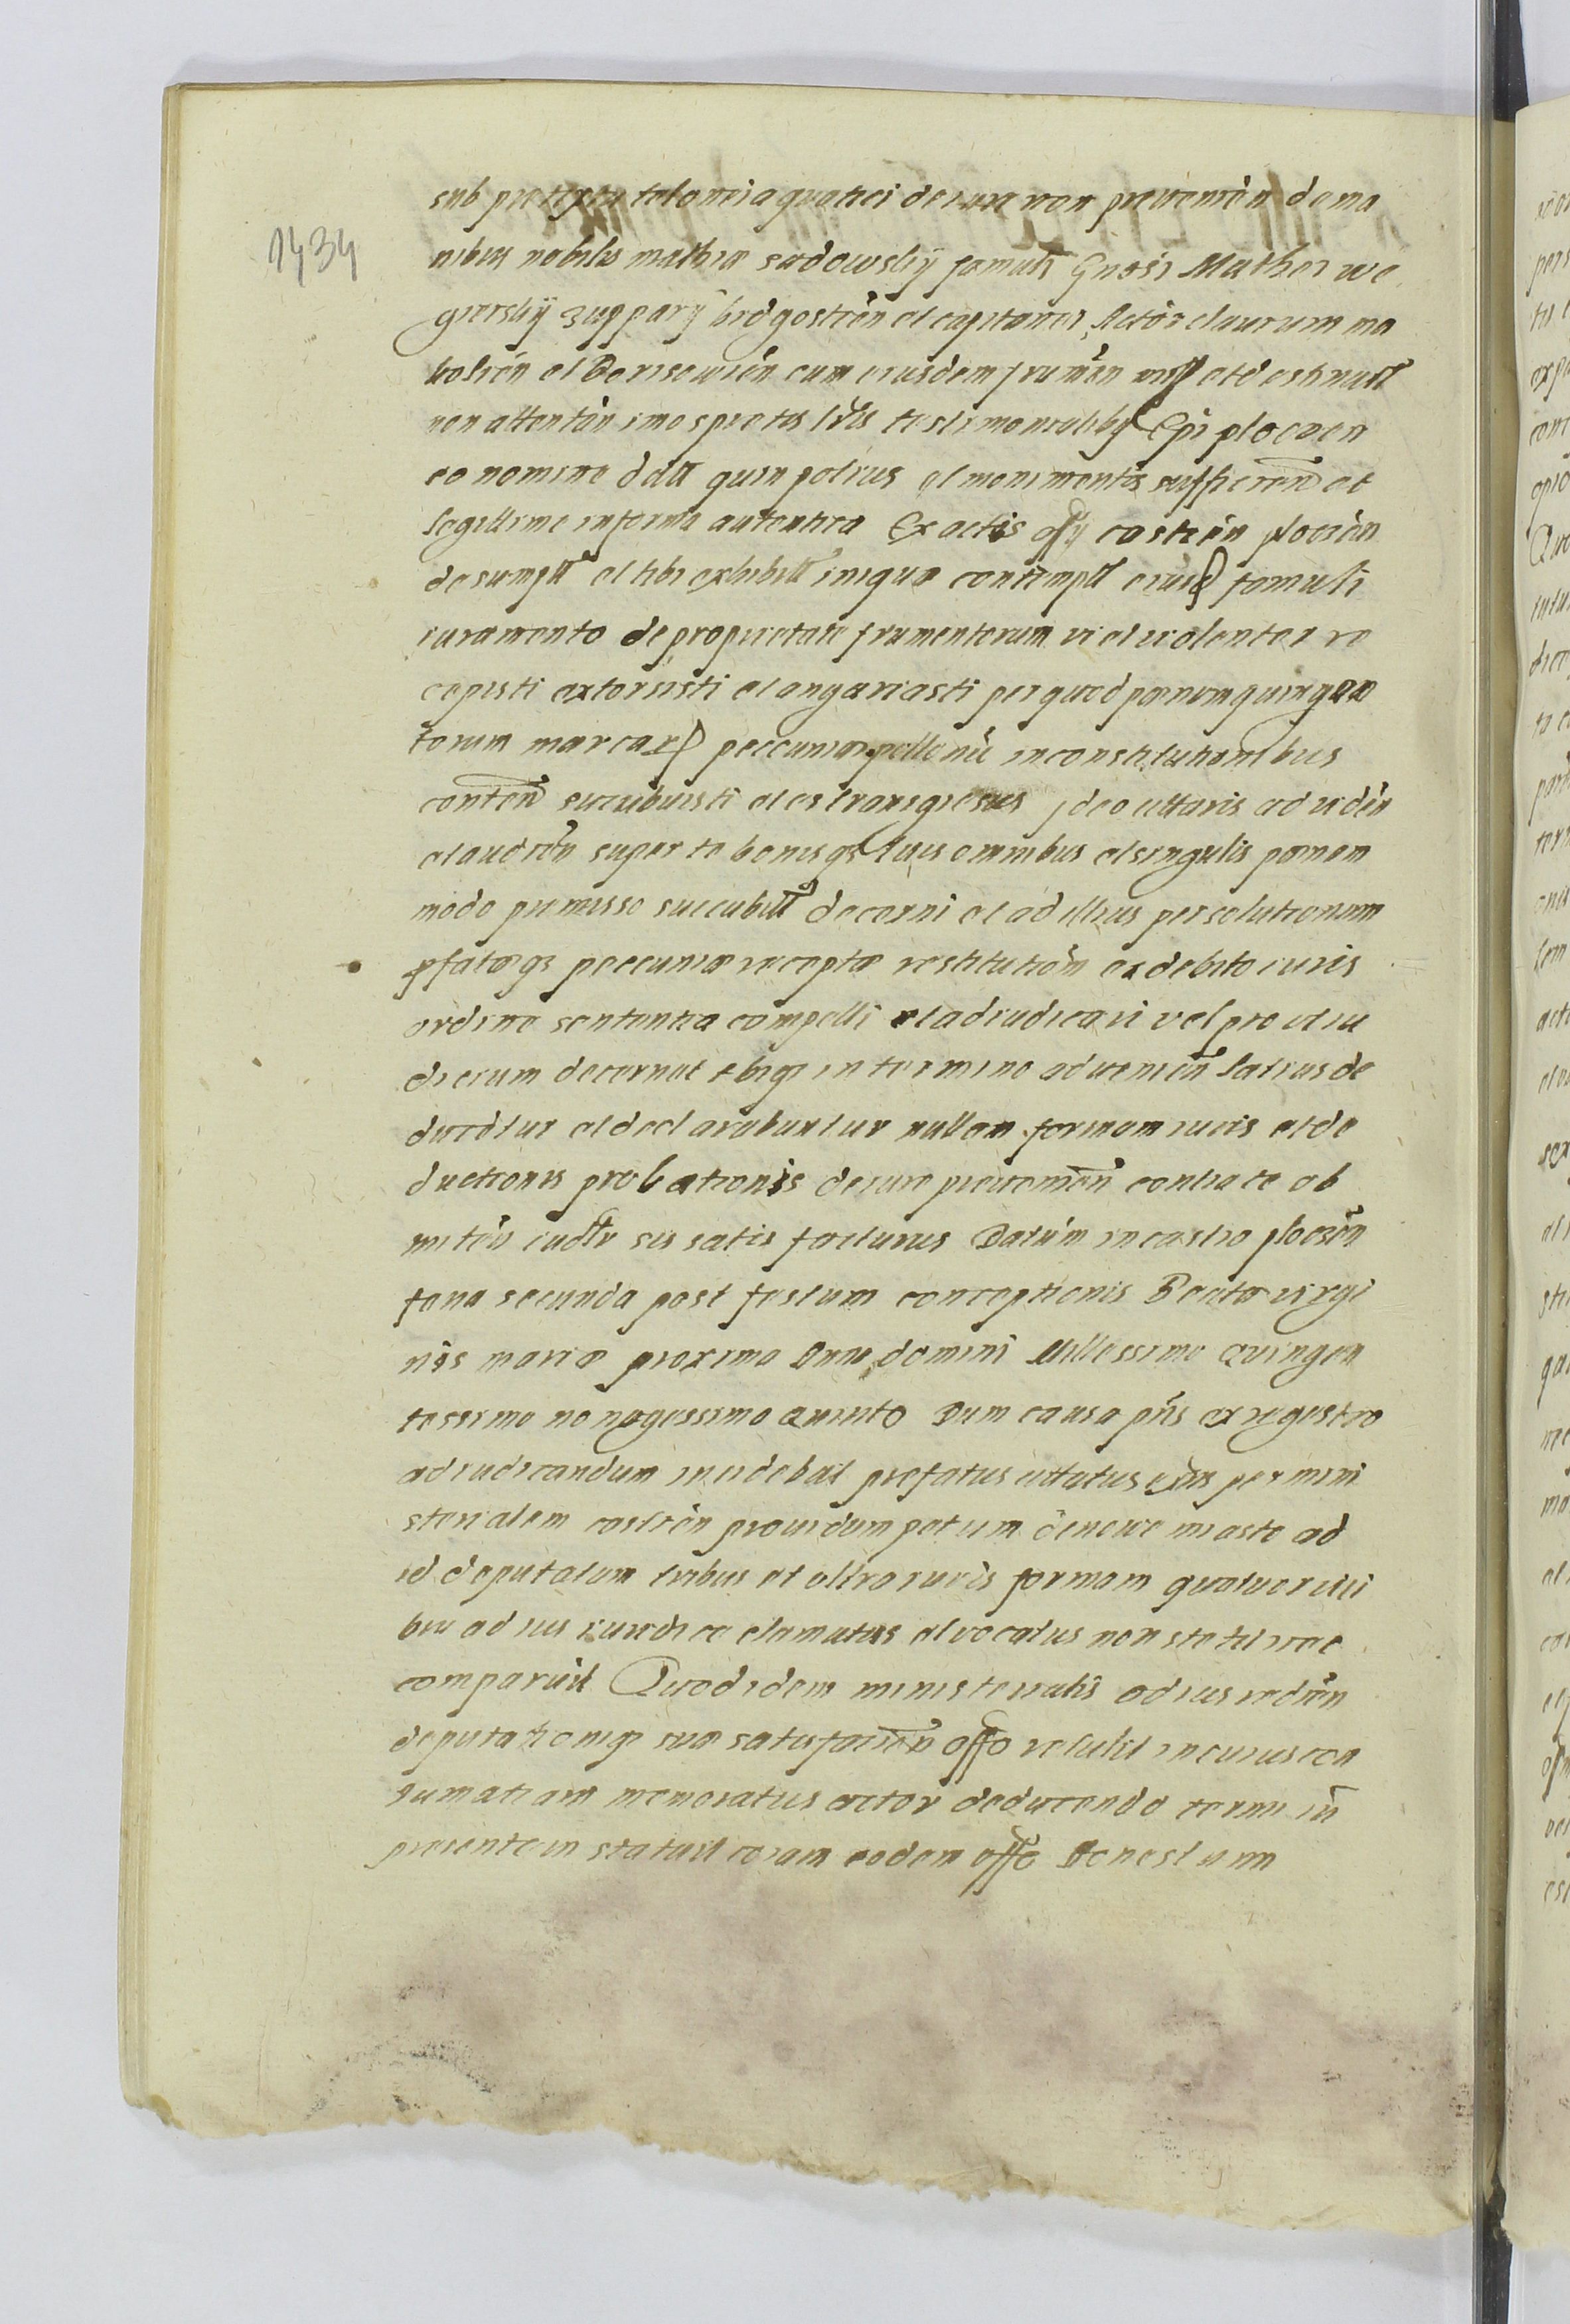 1434
sub pretextu telonei aquatici de iure non prouenien̄ de ma
nibus nobilis mathiæ sadowskÿ famuli Gnosi Mathei we
gierskÿ zupparÿ bidgostień et capitanei
et Borisowień cum eiusdem frumen̄ et destinatt
non attentań imo spretis lr̄is testimonialibq Epi ploczen
eo nomine datt quin potius et monimentis sufficien̄ et
legittime in forma autentica Ex actis offÿ castreń plocień
desumptt et tibi exhibitt inique contemptt eiusd famuli
iuramento de proprietate frumentorum vi et violenter re
cepisti extorsisti et angariasti per quod pœnam quingen
torum marcarp peccuniæ pollonic̄ in constitutionibus
conten̄ succubuisti et es transgresus Ideo cittaris ad videń
et audień super te bonisq tuis omnibus et singulis pœnam
modo premisso succubitt decerni et ad illius persolutionem
pfatæqz peccuniæ receptæ restitutiom̄ ex debito iuris
ordine sententia compelli et adiudicari vel prout iu
dicium decernet tibiqz in termino aduenień latius de
ducetur et declarabuntur nullam formam iuris et de
ductionis probationis de iure prouenień contra te ob
miteń iudłr sis satis facturus Datum in castro plocień
feria secunda post festum conceptionis Beatæ virgi
nis mariæ proximo Anno domini Millessimo Quingen
tessimo nonagessimo Quinto Dum causa pn̄s ex registro
ad iudicandum incidebat prefatus cittatus per mini
sterialem castreń prouidum petrum de nowe miasto ad
id deputatum tribus et ultra iuris formam quatuor vici
bus ad ius iuridice clamatus et vocatus non stetit nec
comparuit Quod idem ministerialis ad ius redień
deputationiqz suæ satisfacień offo retulit in cuius con
tumatiam memoratus actor deducendo termi in̄
presentem statuit coram eodem offo Honestum